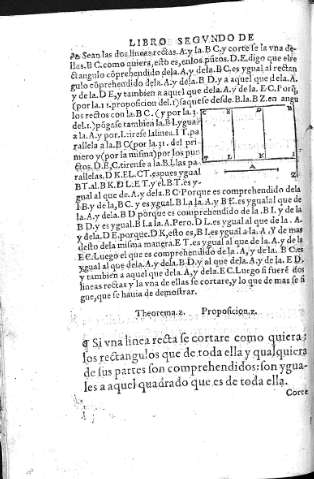 LIBRO SEGVNDO DE
Sean las dos lineas rectas. A.y la. B C.y corte se la vna de
llas. B C. como quiera, esto es, en los pũtos. D.E. digo que el re
ctangulo cõprehendido dela. A.y dela. B C. es ygual al rectan
gulo cõprehendido dela. A.y dela. B D.y a aquel que dela. A.
y de la. D E, y tambien a aquel que dela. A.y dela. E C. Porq̃
(por la.11.proposicion del.1) saque se desde. B.la.BZ.en angu
los rectos con la.BC. (y por la.3.
del.1.) põga se tambien la.BI.ygual
a la.A.y por.I.tire se la linea.IT.pa
rallela a la.BC(por la.31.del pri
mero y(por la misma)por los pun
ctos.D.E,C.tiren se a la.B I.las pa
rallelas.DK.EL.CT.es pues ygual
BT.al.BK.DL.ET.y el.BT.es y-
gual al que de.A.y dela.BC.Porque es comprehendido dela
IB.y dela, BC. y es ygual.BI.a la.A y BK.es ygual al que de
la.A.y dela.BD porque es comprehendido de la.BI.y de la
BD.y es ygual.BI.a la.A.Pero.DL.es ygual al que de la.A
y dela.DE.porque.DK,esto es,BI.es ygual a la.A.Y de mas
desto dela misma manera.ET.es ygual al que de la.A.y de la
EC.Luego el que es comprehendido de la.A,y de la.BC:es
ygual al que dela.A.y dela.BD.y al que dela.A.y de la.ED.
y tambien a aquel que dela.A,y dela.EC.Luego si fuerẽ dos
lineas rectas y la vna de ellas se cortare,y lo que de mas se si
gue,que se hauia de demostrar.
C E D B
T L K I
A
Theorema.2. Proposicion.2.
¶ Si vna linea recta se cortare como quiera;
los rectangulos que de toda ella y qualquiera
de sus partes son comprehendidos: son ygua-
les a aquel quadrado que es de toda ella.
Corte